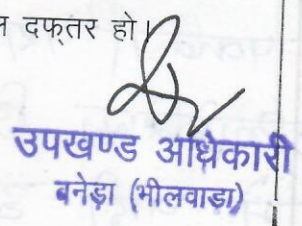 दफ्तर हो।
उपखण्ड अधिकारी
बनेड़ा (भीलवाडा)